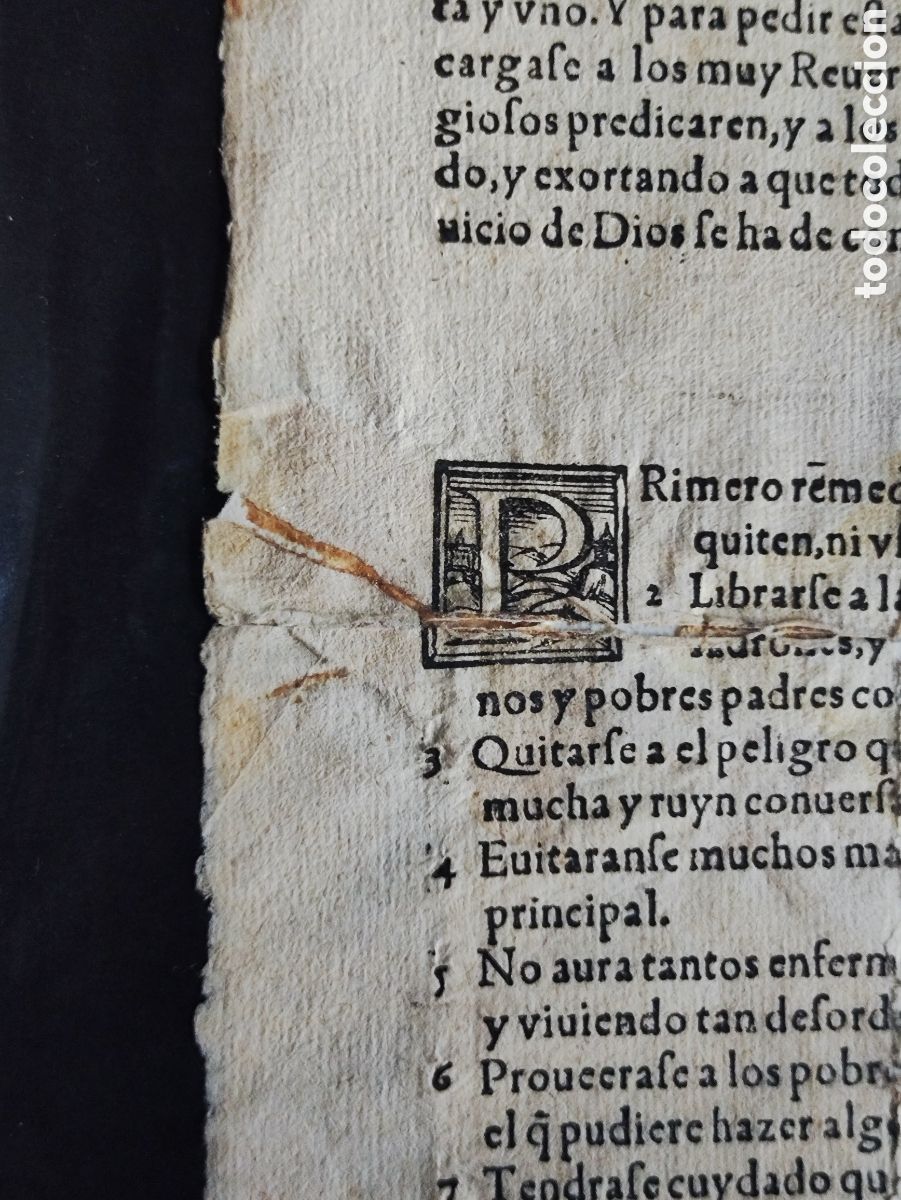 ta y vno. Y para pedir esta
cargaſe a los muy Reuer
gioſos predicaren, y a los
do, y exortando a que tod
uicio de Dios ſe ha de con
PRimero rẽmed
quiten, ni vſ
2 Librarſe a la
ladrones, y
nos y pobres padres co
3 Quitarſe a el peligro q
mucha y ruyn conuerſa
4 Euitaranſe muchos ma
principal.
5 No aura tantos enferm
y viuiendo tan deſord
6 Proueeraſe a los pobre
el q̃ pudiere hazer alg
7 Tendraſe cuydado qu
todocoleccion